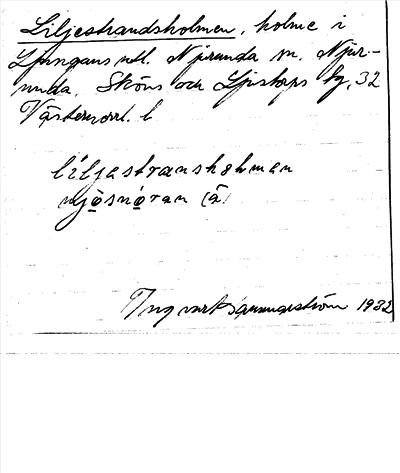 Liljestrandsholmen, holme i
Ljungans utl. Njurunda sn. Njur-
unda, Sköns och Ljustorps tg, 32
Västernorrl. l
liljastranshəlman
njøsnøran (å)
Ingvar 1932